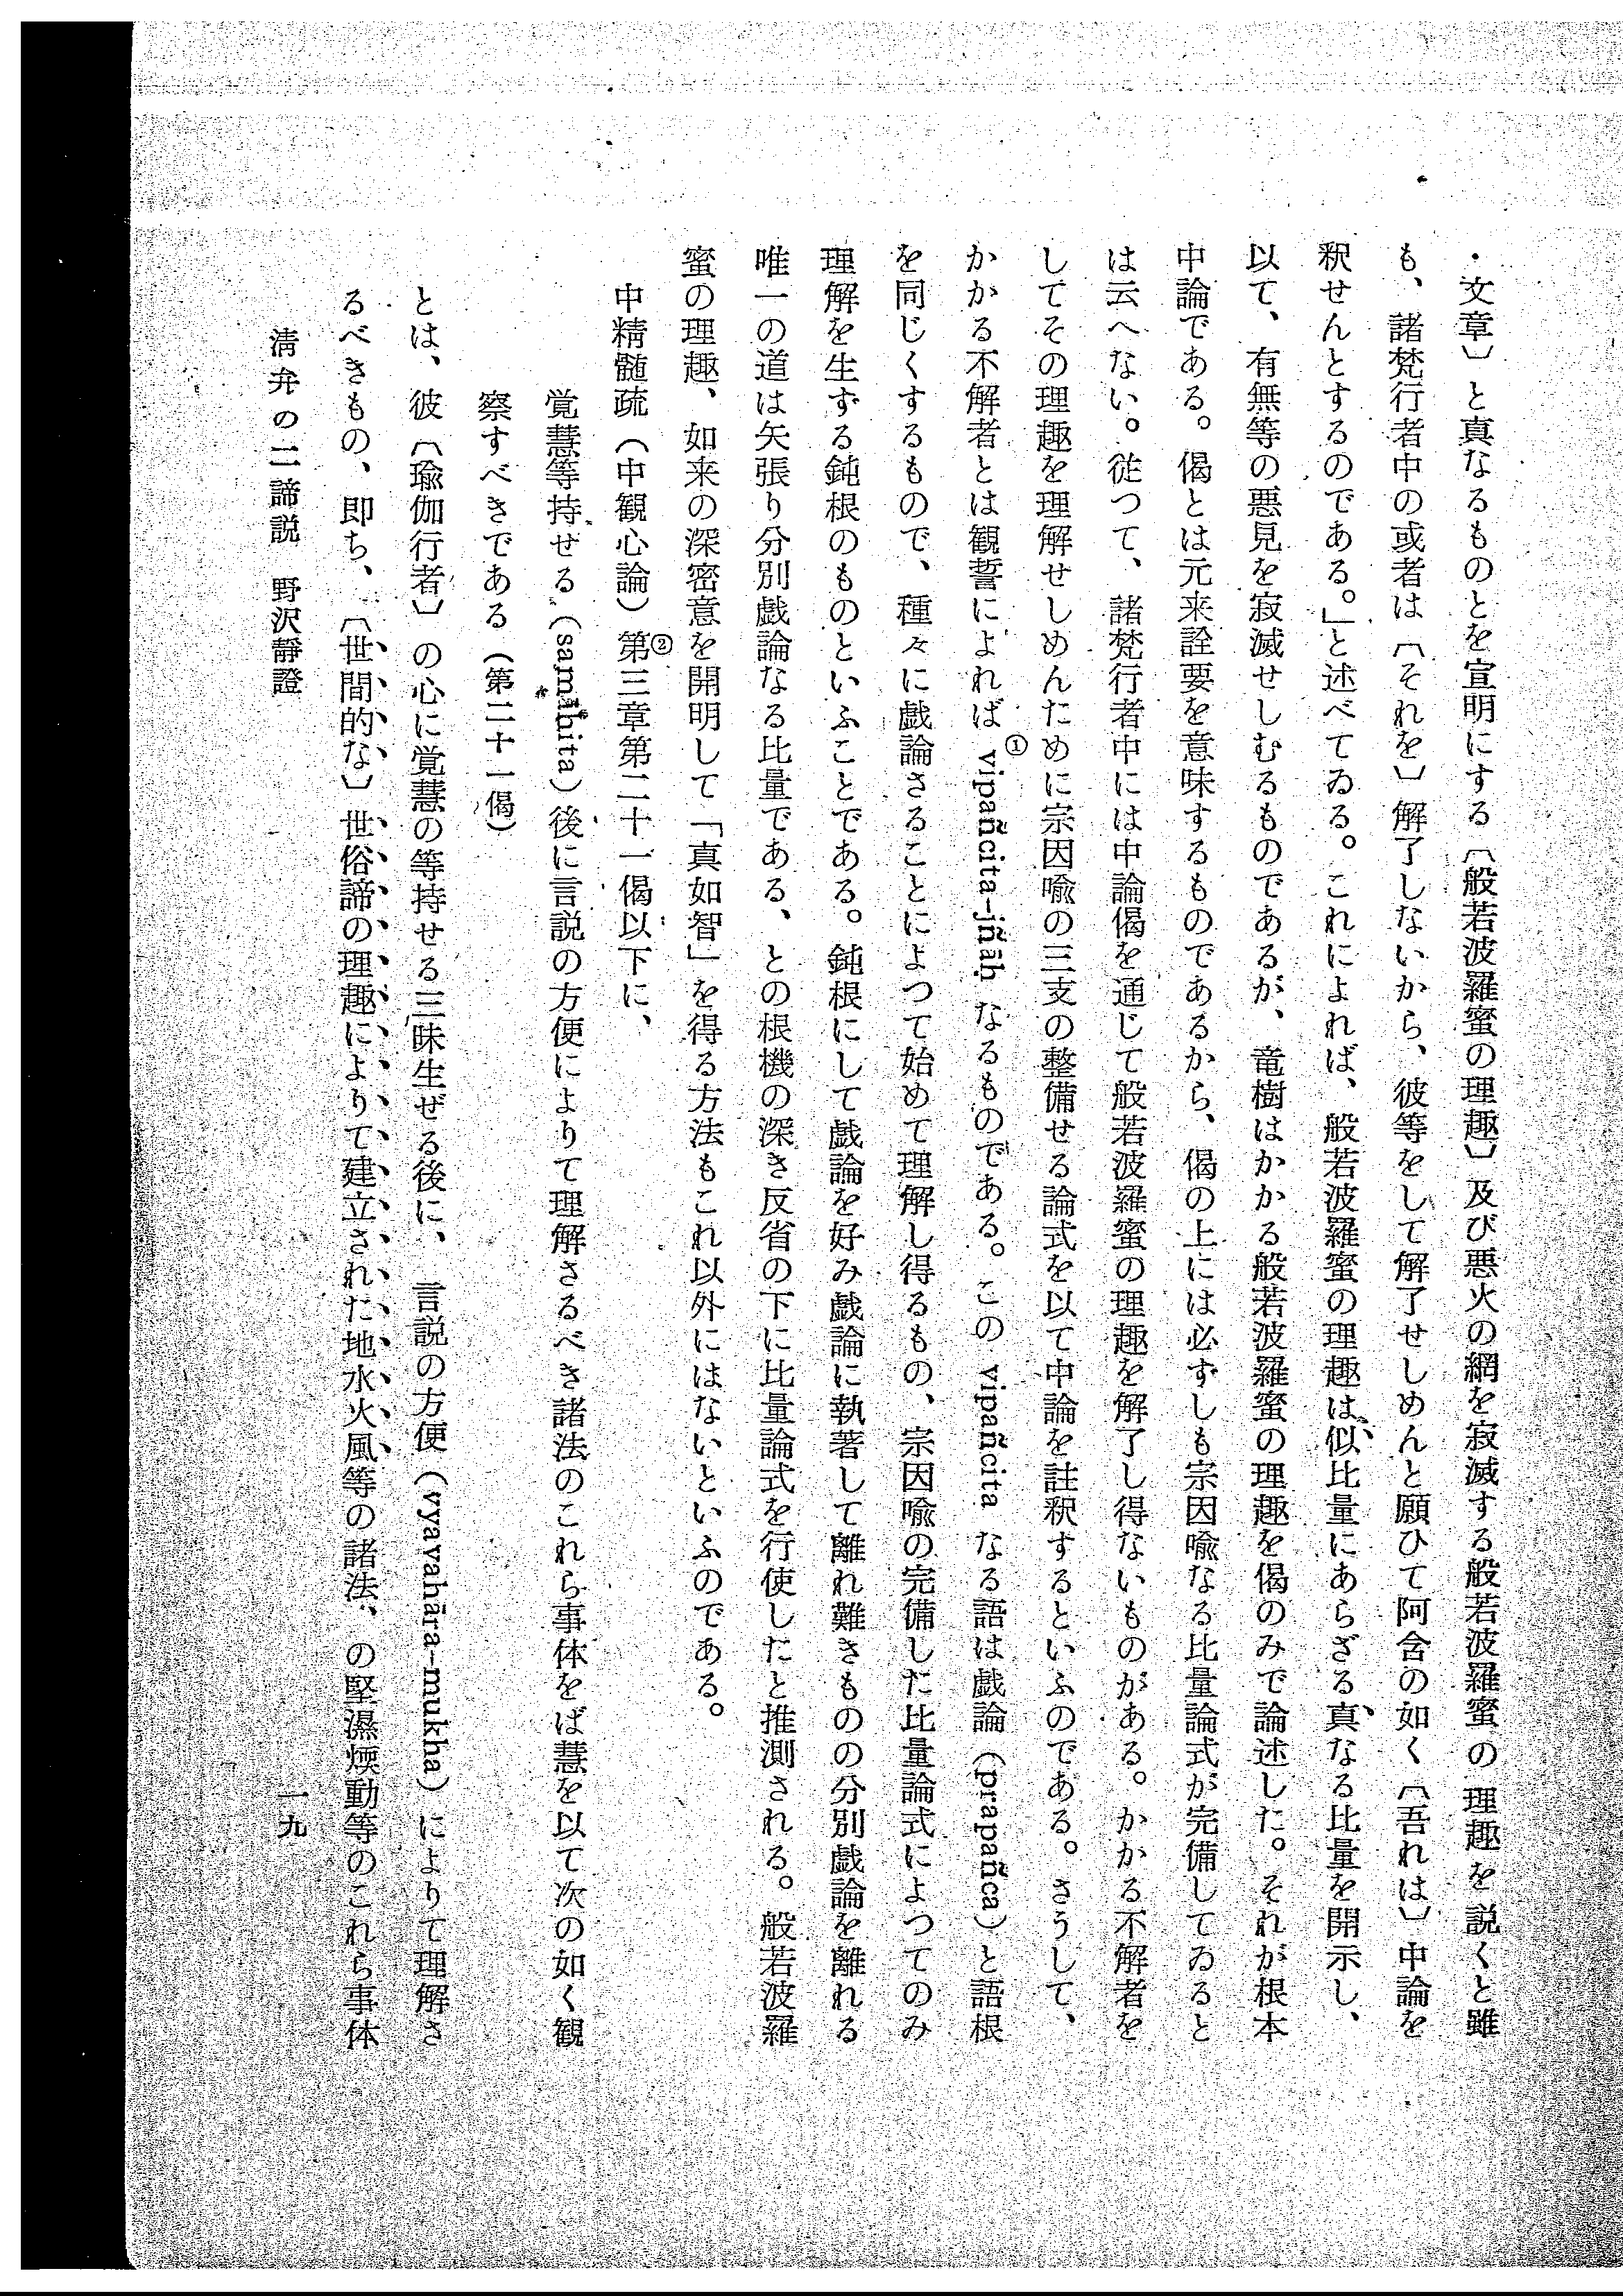 ・文章〕と真なるものとを宣明にする〔般若波羅蜜の理趣〕及び悪火の網を寂滅する般若波羅蜜の理趣を説くと雖
も、諸梵行者中の或者は〔それを〕解了しないから、彼等をして解了せしめんと願ひて阿含の如く〔吾れは〕中論を
釈せんとするのである。」と述べてゐる。これによれば、般若波羅蜜の理趣は似比量にあらざる真なる比量を開示し、
以て、有無等の悪見を寂滅せしむるものであるが、竜樹はかかる般若波羅蜜の理趣を偈のみで論述した。それが根本
中論である。偈とは元来詮要を意味するものであるから、偈の上には必ずしも宗因喩なる比量論式が完備してゐると
は云へない。従つて、諸梵行者中には中論偈を通じて般若波羅蜜の理趣を解了し得ないものがある。かかる不解者を
してその理趣を理解せしめんために宗因喩の三支の整備せる論式を以て中論を註釈するといふのである。さうして、
かかる不解者とは観誓によれば①vipañcita-jñāḥ なるものである。この vipañcita なる語は戯論（prapañca）と語根
を同じくするもので、種々に戯論さることによつて始めて理解し得るもの、宗因喩の完備した比量論式によつてのみ
理解を生ずる鈍根のものといふことである。鈍根にして戯論を好み戯論に執著して離れ難きものの分別戯論を離れる
唯一の道は矢張り分別戯論なる比量である、との根機の深き反省の下に比量論式を行使したと推測される。般若波羅
蜜の理趣、如来の深密意を開明して「真如智」を得る方法もこれ以外にはないといふのである。
中精髄疏（中観心論）②第三章第二十一偈以下に、
覚慧等持せる（samāhita）後に言説の方便によりて理解さるべき諸法のこれら事体をば慧を以て次の如く観
察すべきである（第二十一偈）
とは、彼〔瑜伽行者〕の心に覚慧の等持せる三昧生ぜる後に、言説の方便（vyavahāra-mukha）によりて理解さ
るべきもの、即ち、〔世間的な〕世俗諦の理趣によりて建立された地水火風等の諸法、の堅濕煖動等のこれら事体
清弁の二諦説　野沢靜證
一九